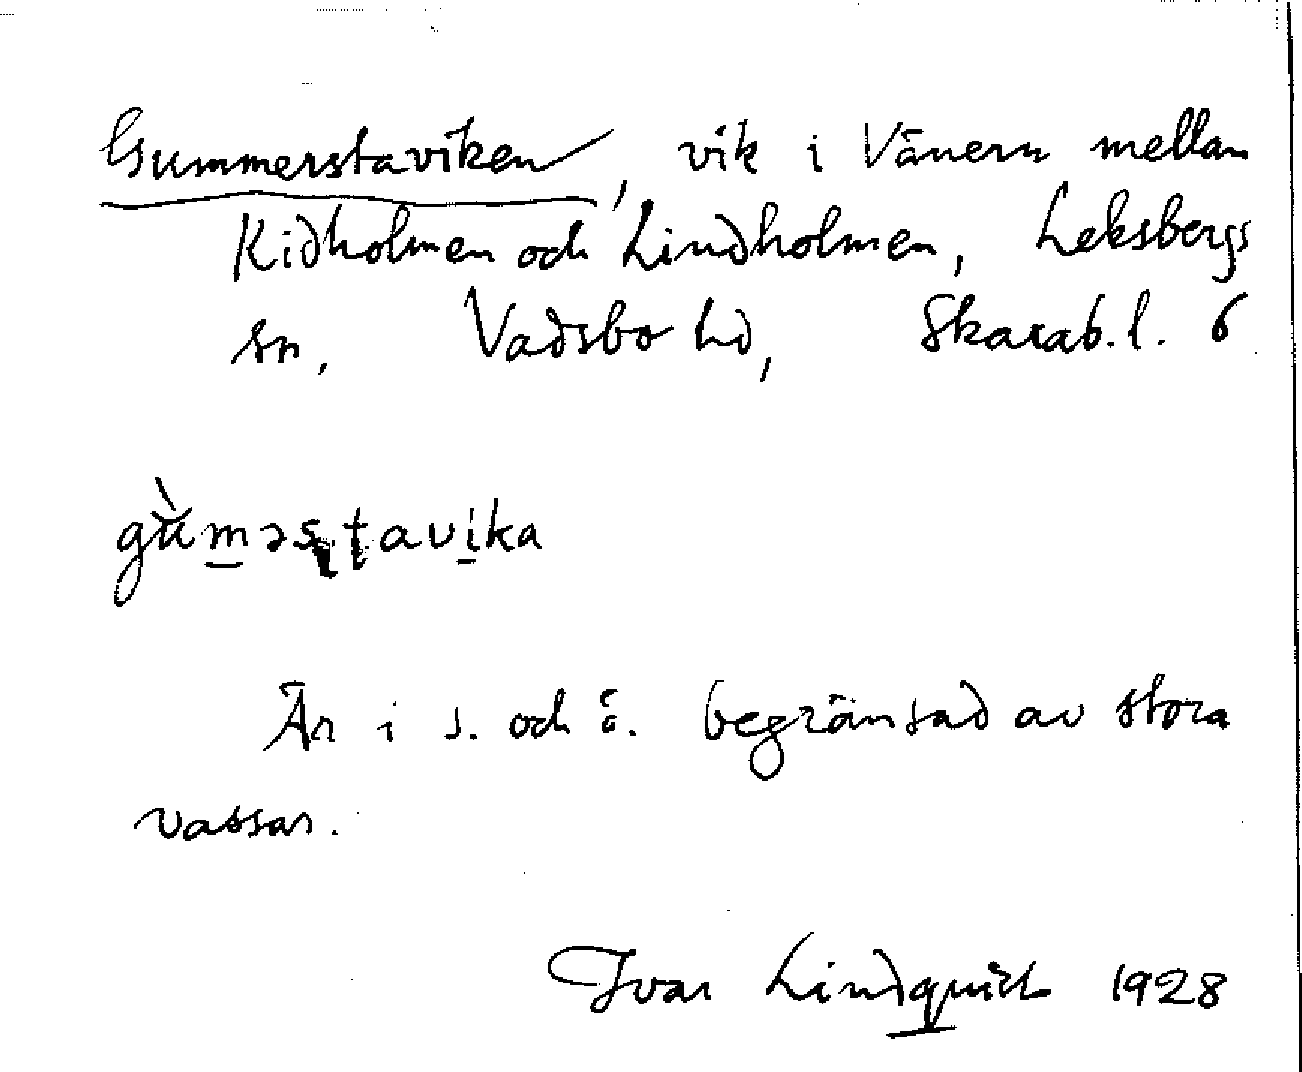 Gummerstaviken, vik i Vänern mellan
Kidholmen och Lindholmen, Leksbergs
sn, Vadsbo hd, Skarab. l. 6
gùməstavika
Är i s. och ö. begränsad av stora
vassar.
Ivar Lindquist 1928